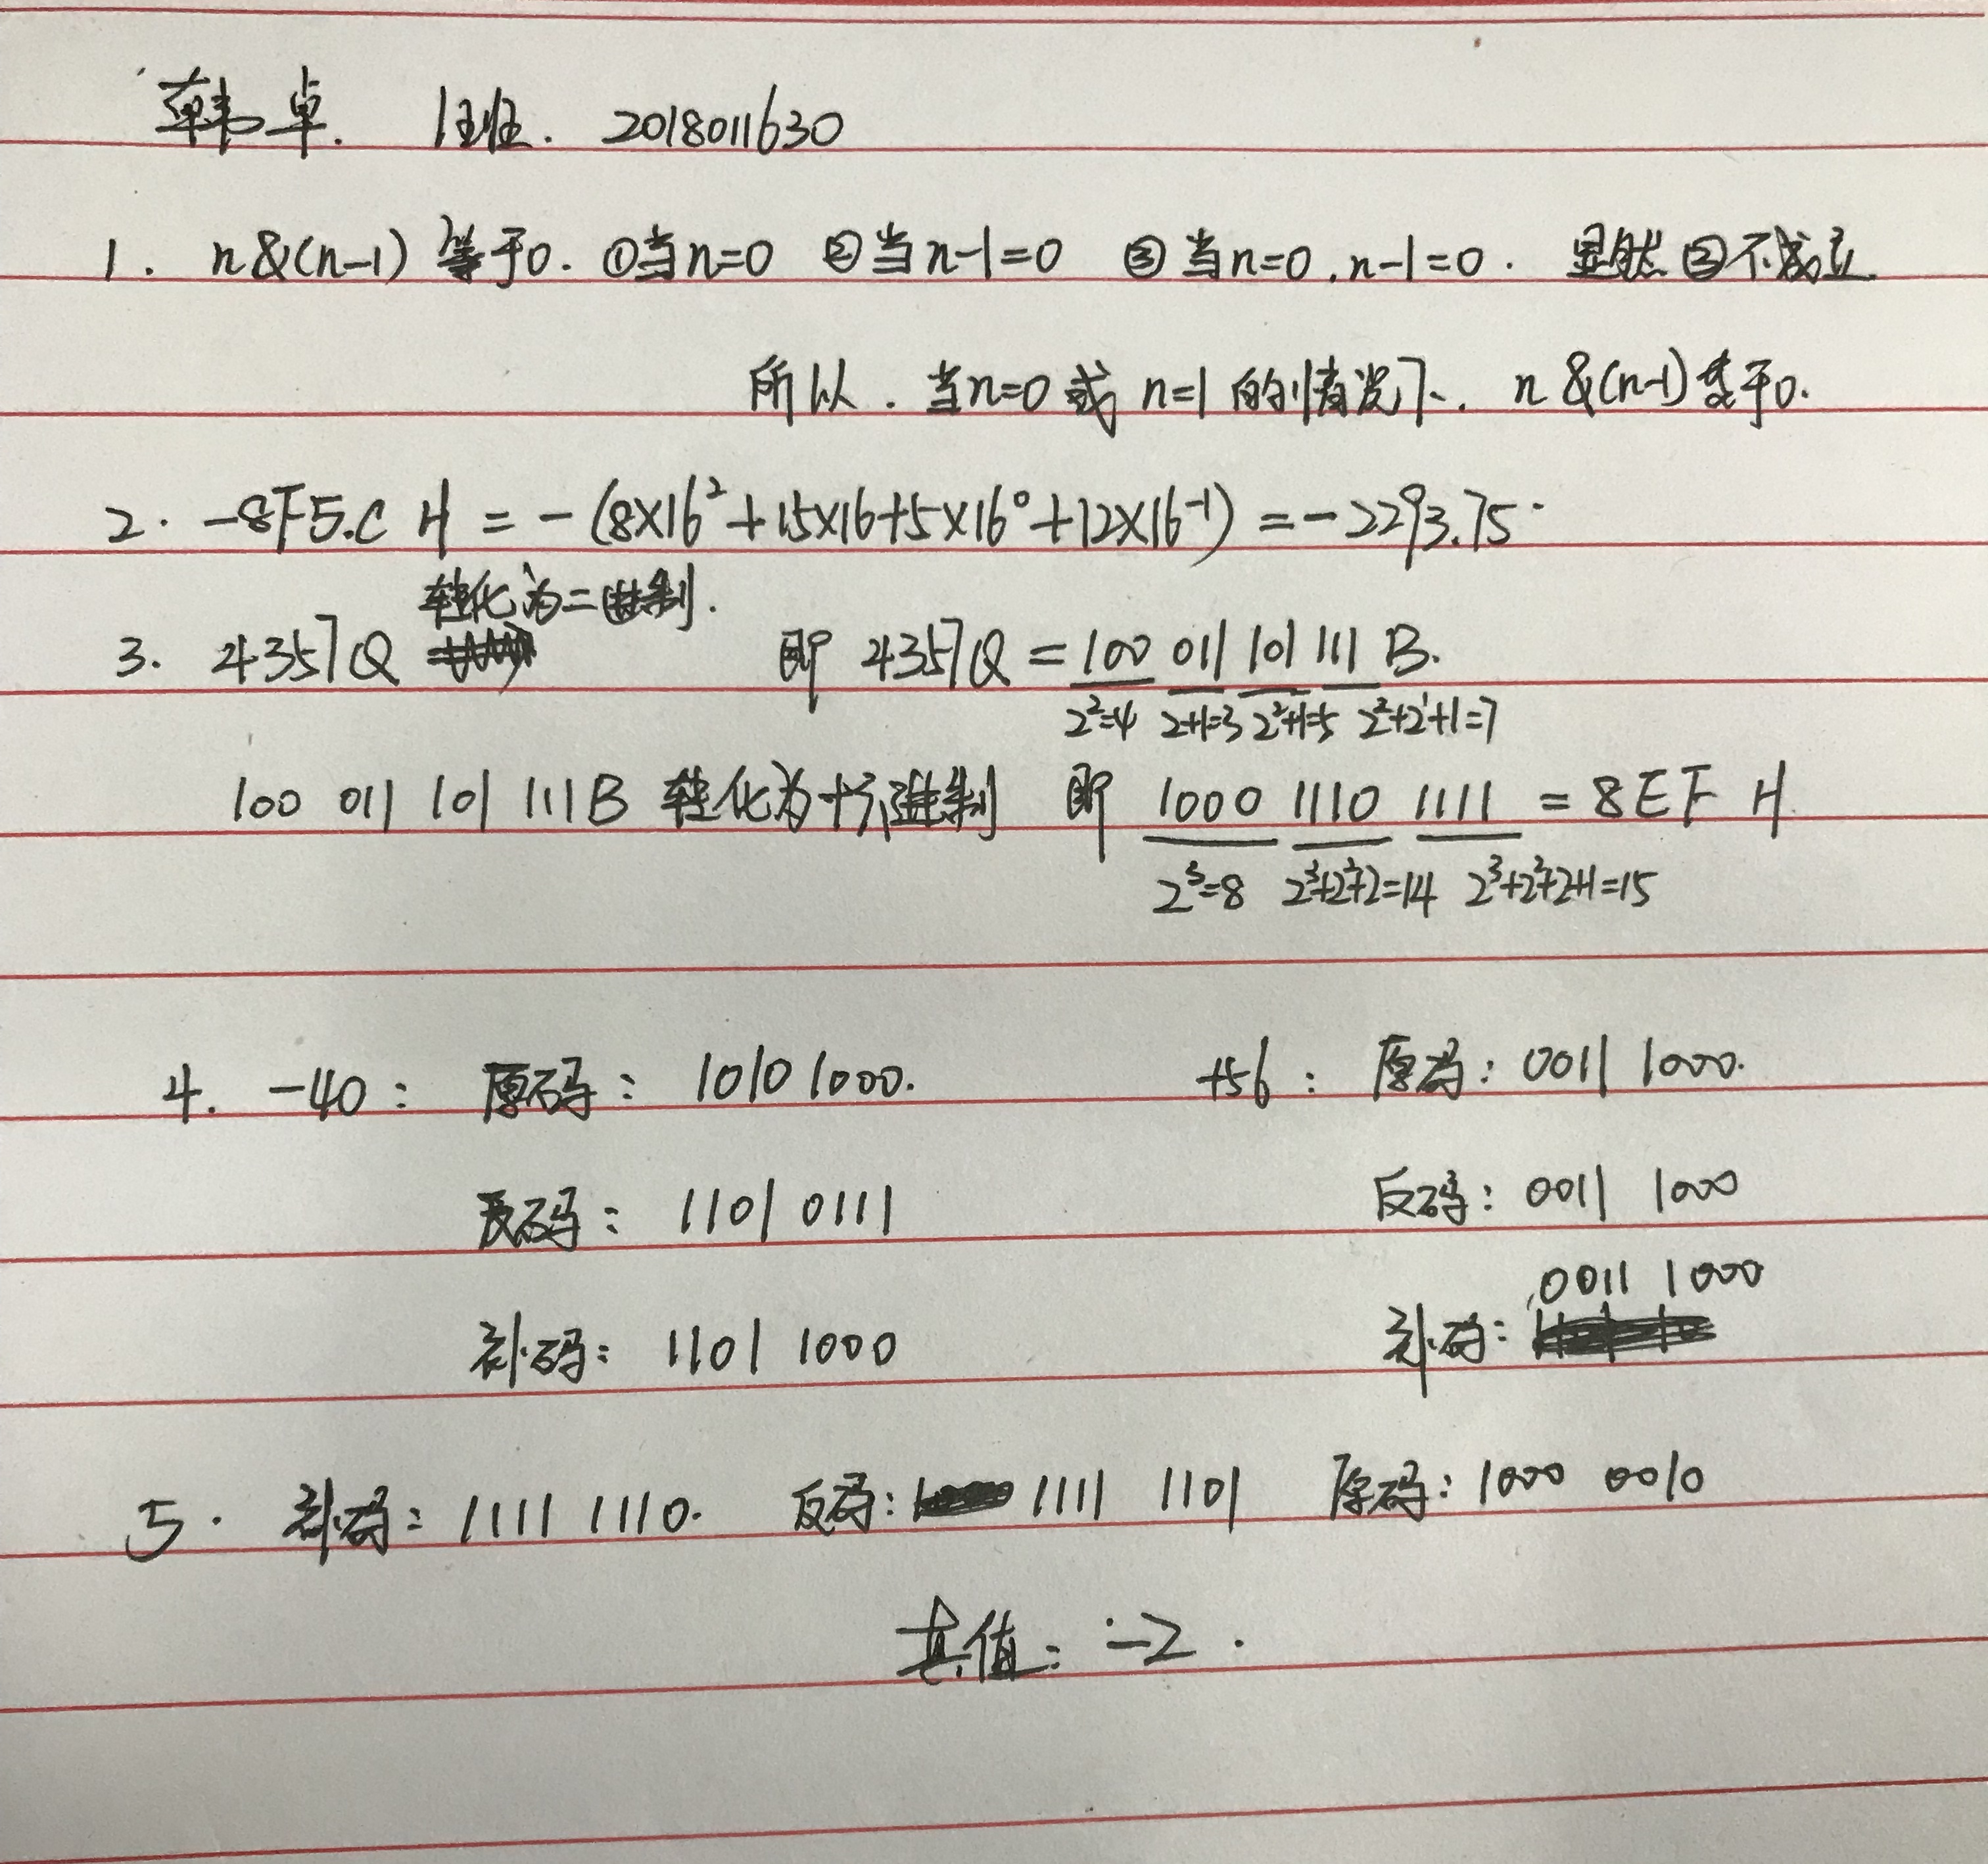 韩卓. 1班. 2018011630
1. n&(n-1) 等于0. ①当n=0 ②当n-1=0 ③当n=0,n-1=0. 显然③不成立.
所以. 当n=0或 n=1的情况下. n&(n-1)等于0.
2. -8F5.C H = -(8×16²+15×16+5×16⁰+12×16⁻¹) = -2293.75
转化为二进制.
3. 4357Q 即 4357Q = 100 011 101 111 B.
2²=4 2+1=3 2²+1=5 2²+2¹+1=7
100 011 101 111B 转化为十六进制 即 1000 1110 1111 = 8EF H
2³=8 2³+2²+2=14 2³+2²+2+1=15
4. -40: 原码: 1010 1000. +56: 原码: 0011 1000.
反码: 1101 0111 反码: 0011 1000
0011 1000
补码: 1101 1000 补码:
5. 补码: 1111 1110. 反码: 1111 1101 原码: 1000 0010
真值: -2.